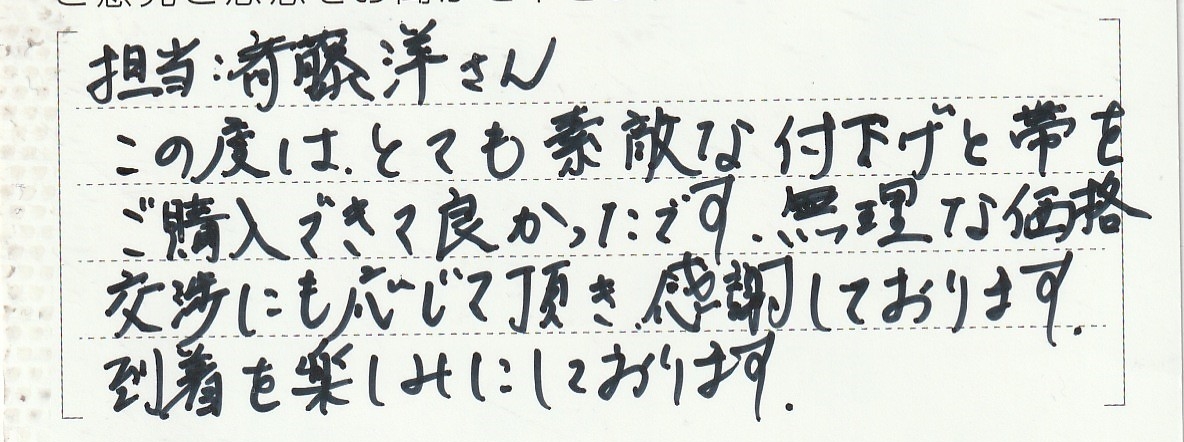 ご意見ご感想をお聞かせ下さい
担当:斉藤洋さん
この度は、とても素敵な付下げと帯を
ご購入できて良かったです。無理な価格
交渉にも応じて頂き、感謝しております。
到着を楽しみにしております。